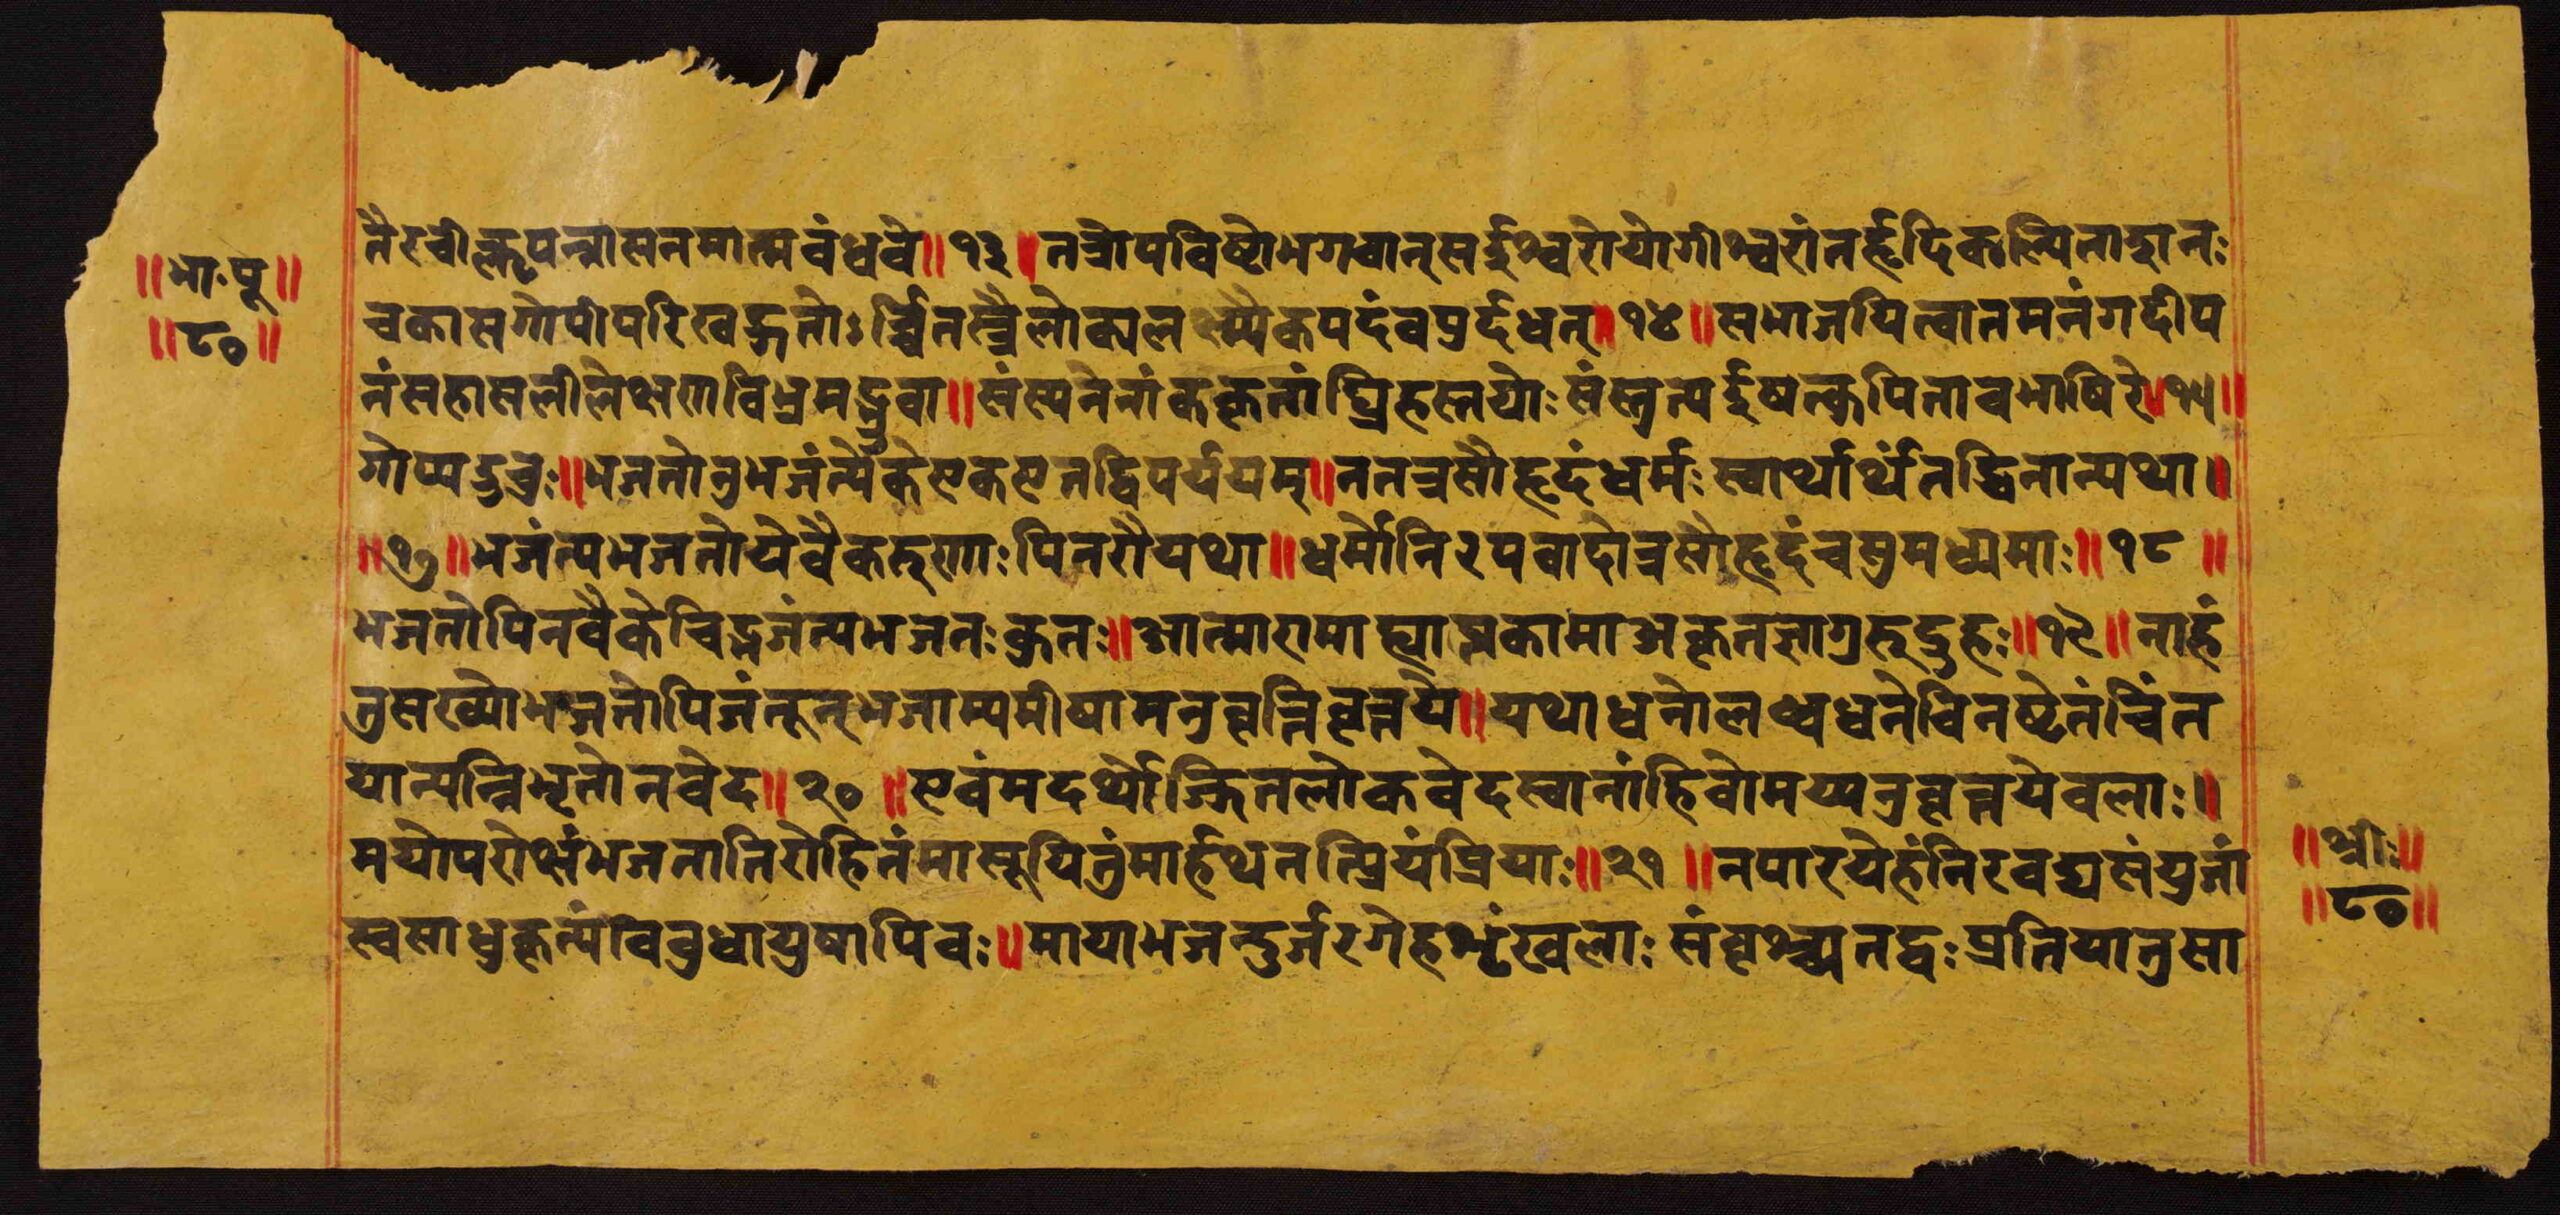 तैरचीकॢपन्नासनमात्मवंधवे॥१३॥तत्रोपविष्टोभगवान्सईश्वरोयोगीश्वरांतर्हृदिकल्पितासनः
॥भा.पू॥
॥८०॥
चकासगोपीपरिखद्गतोःर्च्चितस्त्रैलोक्यलक्ष्म्यैकपदंवपुर्दधत्॥१४॥सभाजयित्वातमनंगदीप
नंसहासलीलेक्षणविभ्रमद्भ्रुवा॥संस्पर्शनेनांककृतांघ्रिहस्तयोःसंस्तुत्यईषत्कुपितावभाषिरे॥१५॥
गोप्यऊचुः॥भजतोनुभजंत्येकेएकएतद्विपर्ययम्॥नतत्रसौहृदंधर्मःस्वार्थार्थंतद्धिनान्यथा॥
॥१७॥भजंत्यभजतोयेवैकरुणाःपितरौयथा॥धर्मोनिरपवादोत्रसौहृदंचसुमध्यमाः॥१८॥
भजतोपिनवैकेचिद्भजंत्यभजतःकुतः॥आत्मारामाह्याप्तकामाअकृतज्ञागुरुद्रुहः॥१९॥नाहं
तुसख्योभजतोपिजंतून्भजाम्यमीषामनुवृत्तिवृत्तये॥यथाधनोलब्धधनेविनष्टेतंचिंत
यान्यन्निभृतोनवेद॥२०॥एवंमदर्थोज्झितलोकवेदस्वानांहिवोमय्यनुवृत्तयेवलाः॥
मयोपरोक्षंभजतातिरोहितंमासूयितुंमार्हथतत्प्रियंप्रियाः॥२१॥नपारयेहंनिरवद्यसंयुजां
॥श्रीः॥
॥८०॥
स्वसाधुकृत्यंविवुधायुषापिवः॥मायाभजन्दुर्जरगेहशृंखलाःसंवृश्च्यतद्वःप्रतियातुसा